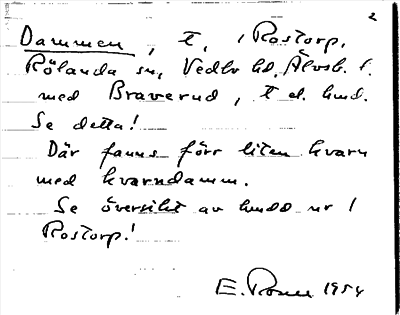 2
Dammen, t, i Rostorp,
Rölanda sn, Vedbo hd, Älvsb. l.
med Braverud, t el. hmd.
Se detta!
Där fanns förr liten kvarn
med kvarndamm.
Se översikt av hmdd ur i
Rostorp!
E. Rosell 1954